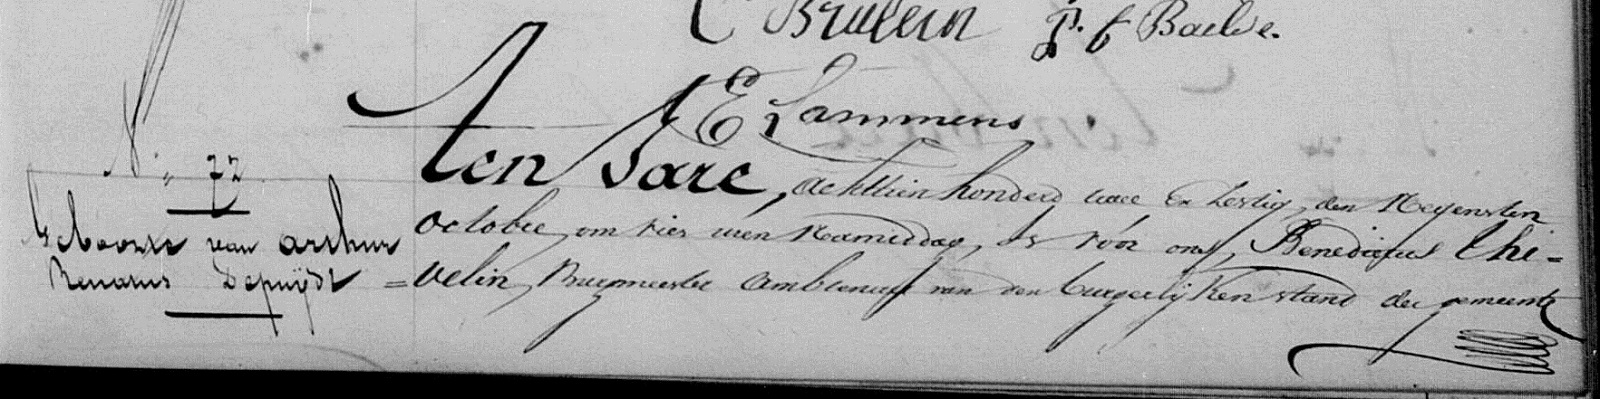 C Brulein P. f Baelde.
E Lammens
N.° 72.
Geboorte van Arthur
Renatus Depuijdt
Ten Jare, achttien honderd twee en zestig, den Negensten
october, om vier uren Namiddag, is vóór ons, Benedictus Thi-
=velin, Burgmeester Ambtenaar van den burgerlijken stand der gemeente